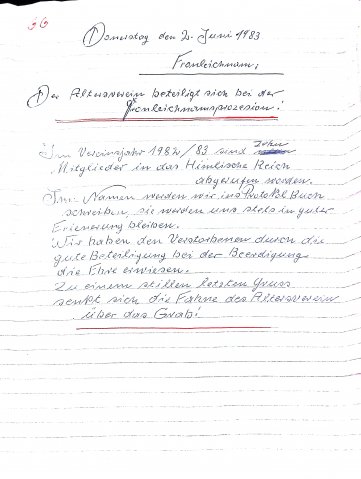 36
Donnerstag den 2. Juni 1983
Fronleichnam;
Der Altersverein beteiligt sich bei der
Fronleichnamsprozesion!
Im Vereinsjahr 1982/83 sind Zehn
Mitglieder in das Himlische Reich
abgerufen worden.
Ihre Namen werden wir ins Protokol Buch
schreiben, sie werden uns stets in guter
Erienerung bleiben.
Wir haben den Verstorbenen durch die
gute Beteiligung bei der Beerdigung
die Ehre erwiesen.
Zu einem stillen letzten Gruss
senkt sich die Fahne des Altersverein
über das Grab!